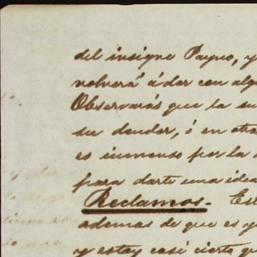 del insigne Payno, y
volverá á dar con alg
Observarás que la su
su deudor, ó en otra
es inmenso por la
para darte una idea
Reclamos.- Est
ademas de que es y
y estoy casi cierto q